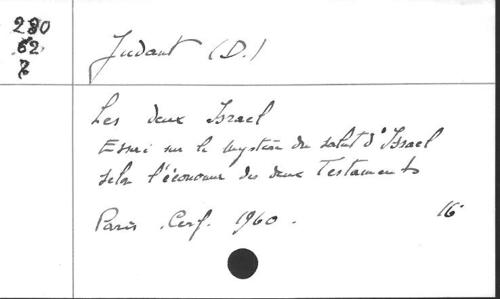 280
62
7
Judant (D.)
Les deux Israel
Essai sur le mystère du salut d'Israel
selon l'économie des deux Testaments
Paris. Cerf. 1960. 16°